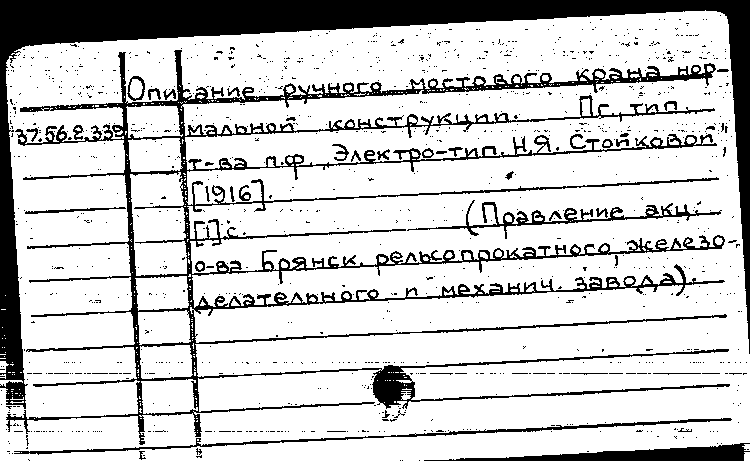 Описание ручного мостового крана нор-
37.56.2.339. мальной конструкции. Пг., тип.
т-ва п.ф. „Электро-тип. Н.Я. Стойковой",
[1916].
[1] с. (Правление акц.
о-ва Брянск. рельсопрокатного, железо-
делательного и механич. завода).